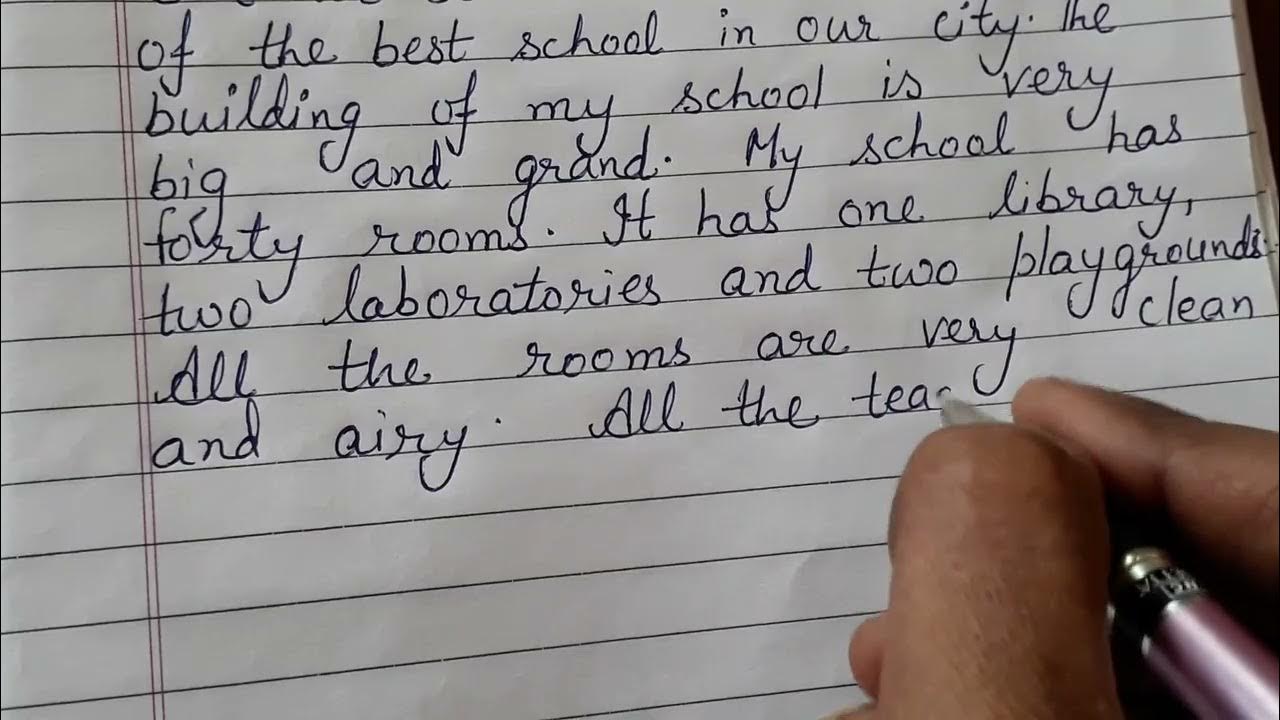 of the best school in our city. The
building of my school is very
big and grand. My school has
forty rooms. It has one library,
two laboratories and two playgrounds.
All the rooms are very clean
and airy. All the tea